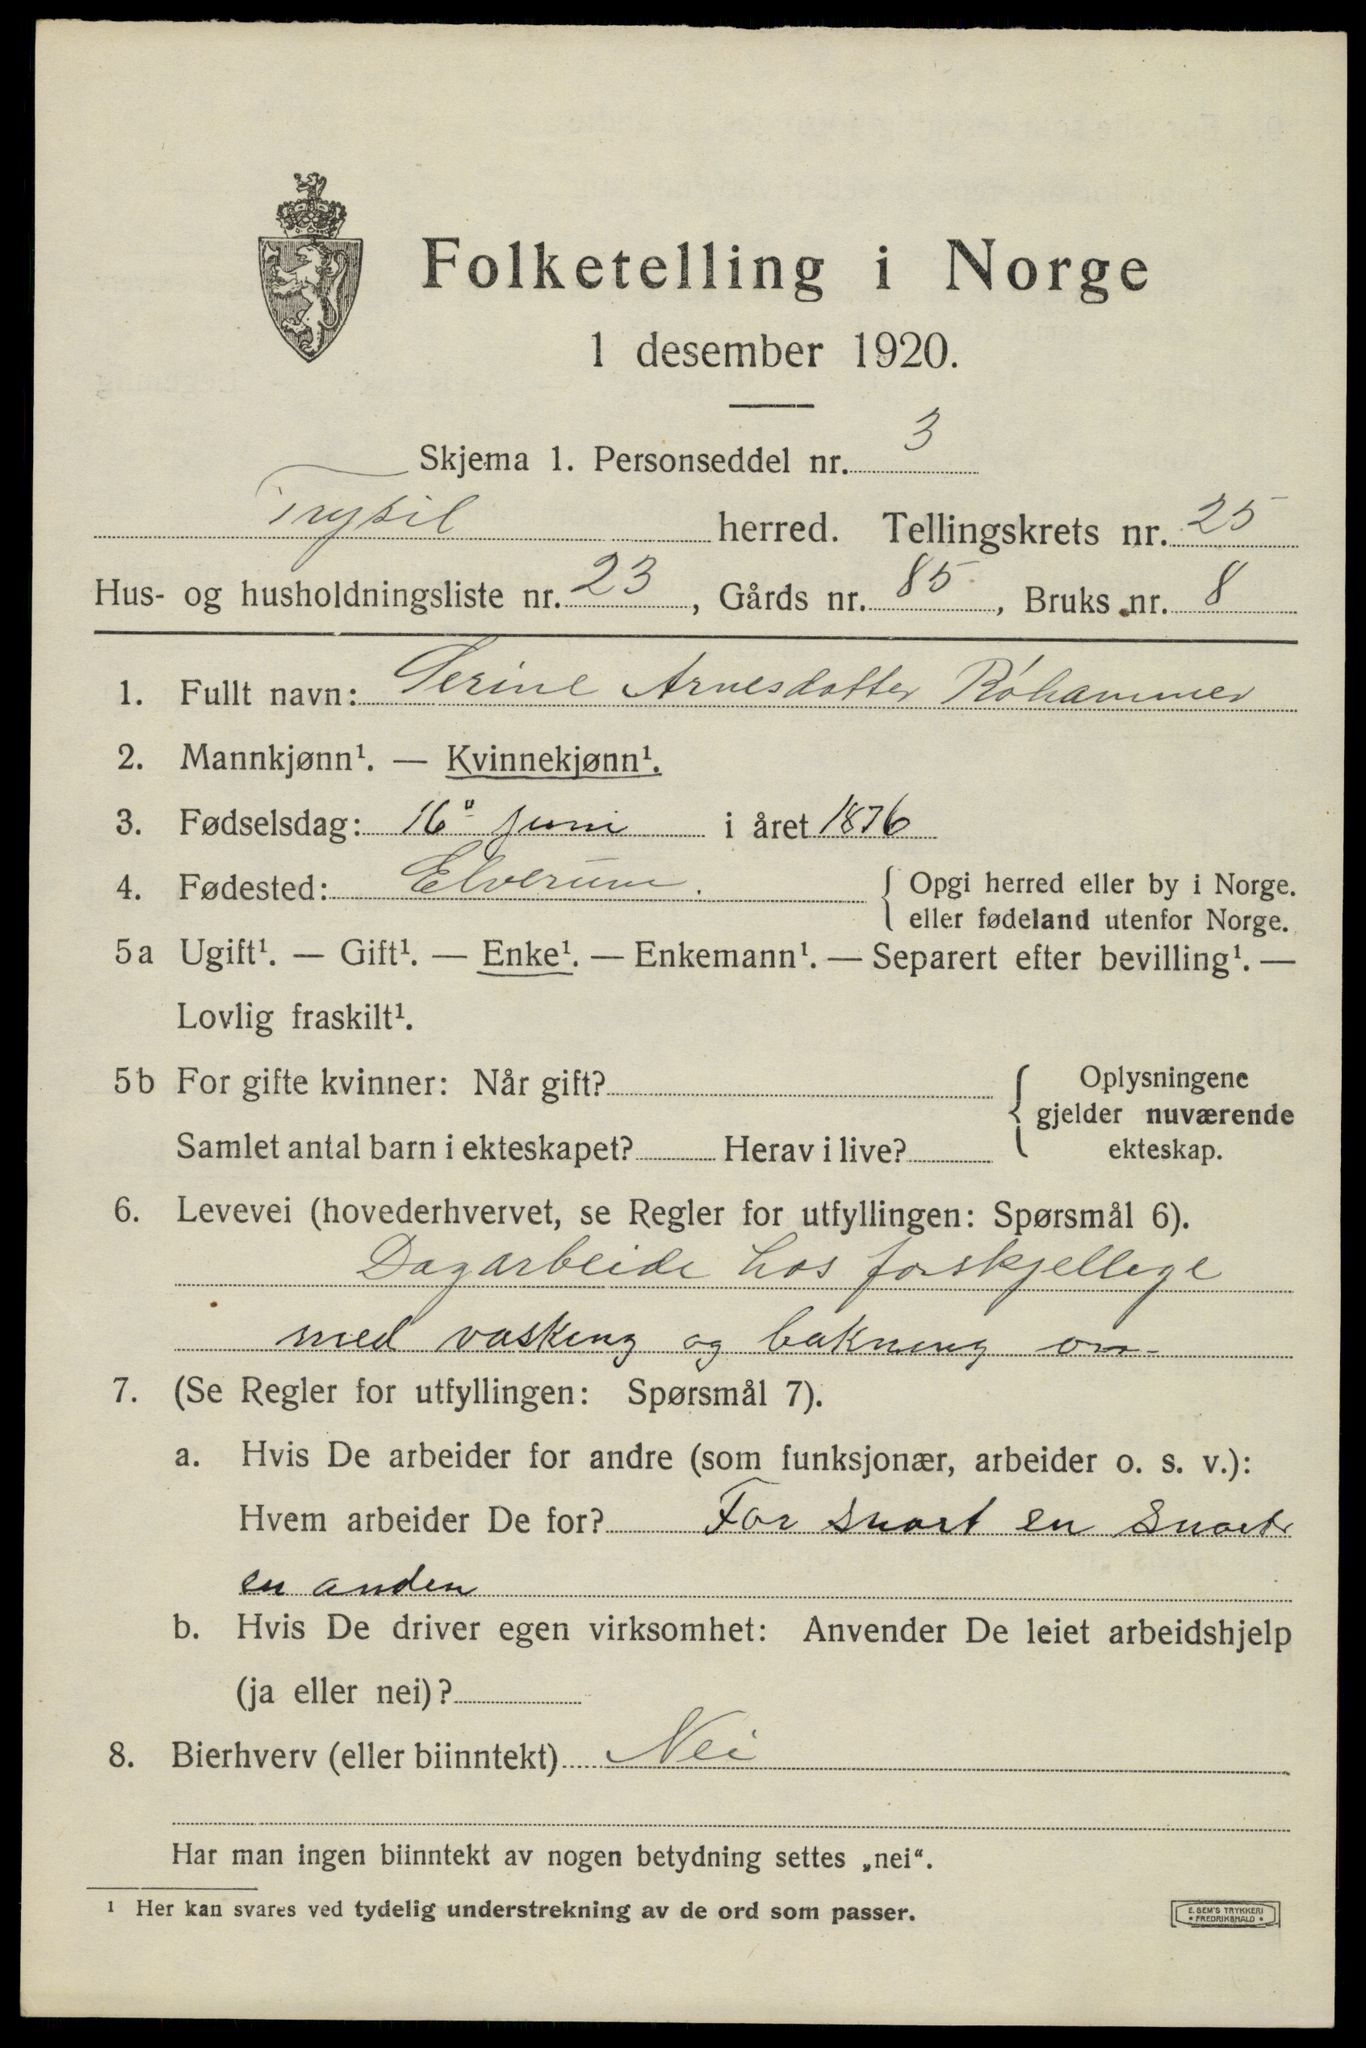 Folketelling i Norge
1 desember 1920.
Skjema 1. Personseddel nr. 3
Trysil herred. Tellingskrets nr. 25
Hus- og husholdningsliste nr. 23, Gårds nr. 85, Bruks nr. 8
1. Fullt navn: Serine Arnesdatter Röhammer
2. Mannkjønn¹. — Kvinnekjønn¹.
3. Fødselsdag: 16" juni i året 1876
4. Fødested: Elverum. { Opgi herred eller by i Norge.
eller fødeland utenfor Norge.
5a Ugift¹. — Gift¹. — Enke¹. — Enkemann¹. — Separert efter bevilling¹. —
Lovlig fraskilt¹.
5b For gifte kvinner: Når gift? { Oplysningene
gjelder nuværende
Samlet antal barn i ekteskapet? Herav i live? ekteskap.
6. Levevei (hovederhvervet, se Regler for utfyllingen: Spørsmål 6).
Dagarbeide hos forskjellige
med vasking og bakning
7. (Se Regler for utfyllingen: Spørsmål 7).
a. Hvis De arbeider for andre (som funksjonær, arbeider o. s. v.):
Hvem arbeider De for? For snart en snart
en anden
b. Hvis De driver egen virksomhet: Anvender De leiet arbeidshjelp
(ja eller nei)?
8. Bierhverv (eller biinntekt) Nei
Har man ingen biinntekt av nogen betydning settes „nei“.
1 Her kan svares ved tydelig understrekning av de ord som passer.
E. SEM'S TRYKKERI
* FREDRIKSHALD *